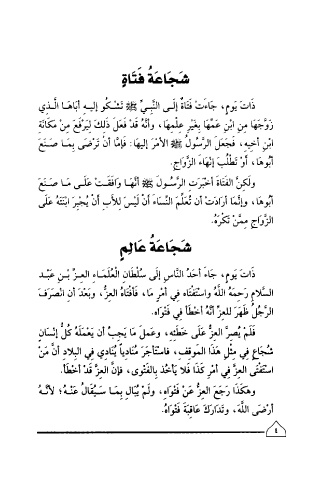 شَجَاعَةُ فَتَاةٍ
ذَاتَ يَومٍ، جَاءَتْ فَتَاةٌ إِلَى النَّبِيِّ ﷺ تَشْكُو إِلَيهِ أَبَاهَا الَّذِي
زَوَّجَهَا مِنِ ابْنِ عَمِّهَا بِغَيْرِ عِلْمِهَا، وَأَنَّهُ قَدْ فَعَلَ ذَلِكَ لِيَرْفَعَ مِنْ مَكَانَةِ
ابْنِ أَخِيهِ، فَجَعَلَ الرَّسُولُ ﷺ الأَمْرَ إِلَيهَا: فَإِمَّا أَنْ تَرْضَى بِمَا صَنَعَ
أَبُوهَا، أَوْ تَطْلُبَ إِنْهَاءَ الزَّوَاجِ.
وَلكِنَّ الفَتَاةَ أَخْبَرَتِ الرَّسُولَ ﷺ أَنَّهَا وَافَقَتْ عَلَى مَا صَنَعَ
أَبُوهَا، وَإِنَّمَا أَرَادَتْ أَنْ تُعْلِمَ النِّسَاءَ أَنْ لَيْسَ لِلأَبِ أَنْ يُجْبِرَ ابْنَتَهُ عَلَى
الزَّوَاجِ مِمَّنْ تَكْرَهُ.
شَجَاعَةُ عَالِمٍ
ذَاتَ يَومٍ، جَاءَ أَحَدُ النَّاسِ إِلَى سُلْطَانِ الْعُلَمَاءِ العِزِّ بْنِ عَبْدِ
السَّلَامِ رَحِمَهُ اللَّهُ وَاسْتَفْتَاهُ فِي أَمْرٍ مَا، فَأَفْتَاهُ العِزُّ، وَبَعْدَ أَنِ انْصَرَفَ
الرَّجُلُ ظَهَرَ لِلعِزِّ أَنَّهُ أَخْطَأَ فِي فَتْوَاهُ.
فَلَمْ يُصِرَّ العِزُّ عَلَى خَطَئِهِ، وَعَمِلَ مَا يَجِبُ أَن يَعْمَلَهُ كُلُّ إِنْسَانٍ
شُجَاعٍ فِي مِثْلِ هَذَا المَوقِفِ، فَاسْتَأْجَرَ مُنَادِياً يُنَادِي فِي البِلَادِ أَنَّ مَنْ
اسْتَفْتَى العِزَّ فِي أَمْرِ كَذَا فَلَا يَأْخُذْ بِالفَتْوَى، فَإِنَّ العِزَّ قَدْ أَخْطَأَ.
وَهكَذَا رَجَعَ العِزُّ عَنْ فَتْوَاهُ، وَلَمْ يُبَالِ بِمَا سَيُقَالُ عَنْهُ؛ لأَنَّهُ
أَرْضَى اللَّهَ، وَتَدَارَكَ عَاقِبَةَ فَتْوَاهُ.
٤